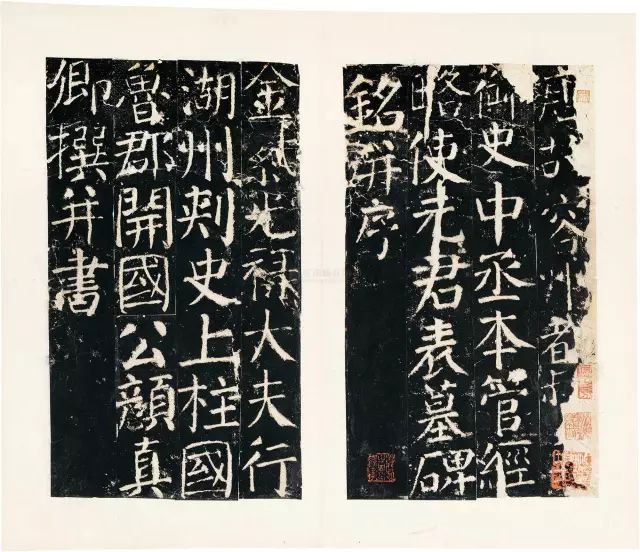 唐故容州都
御史中丞本管經
略使元君表墓碑
銘并序
金紫光祿大夫行
湖州刺史上柱國
魯郡開國公顏真
卿撰并書